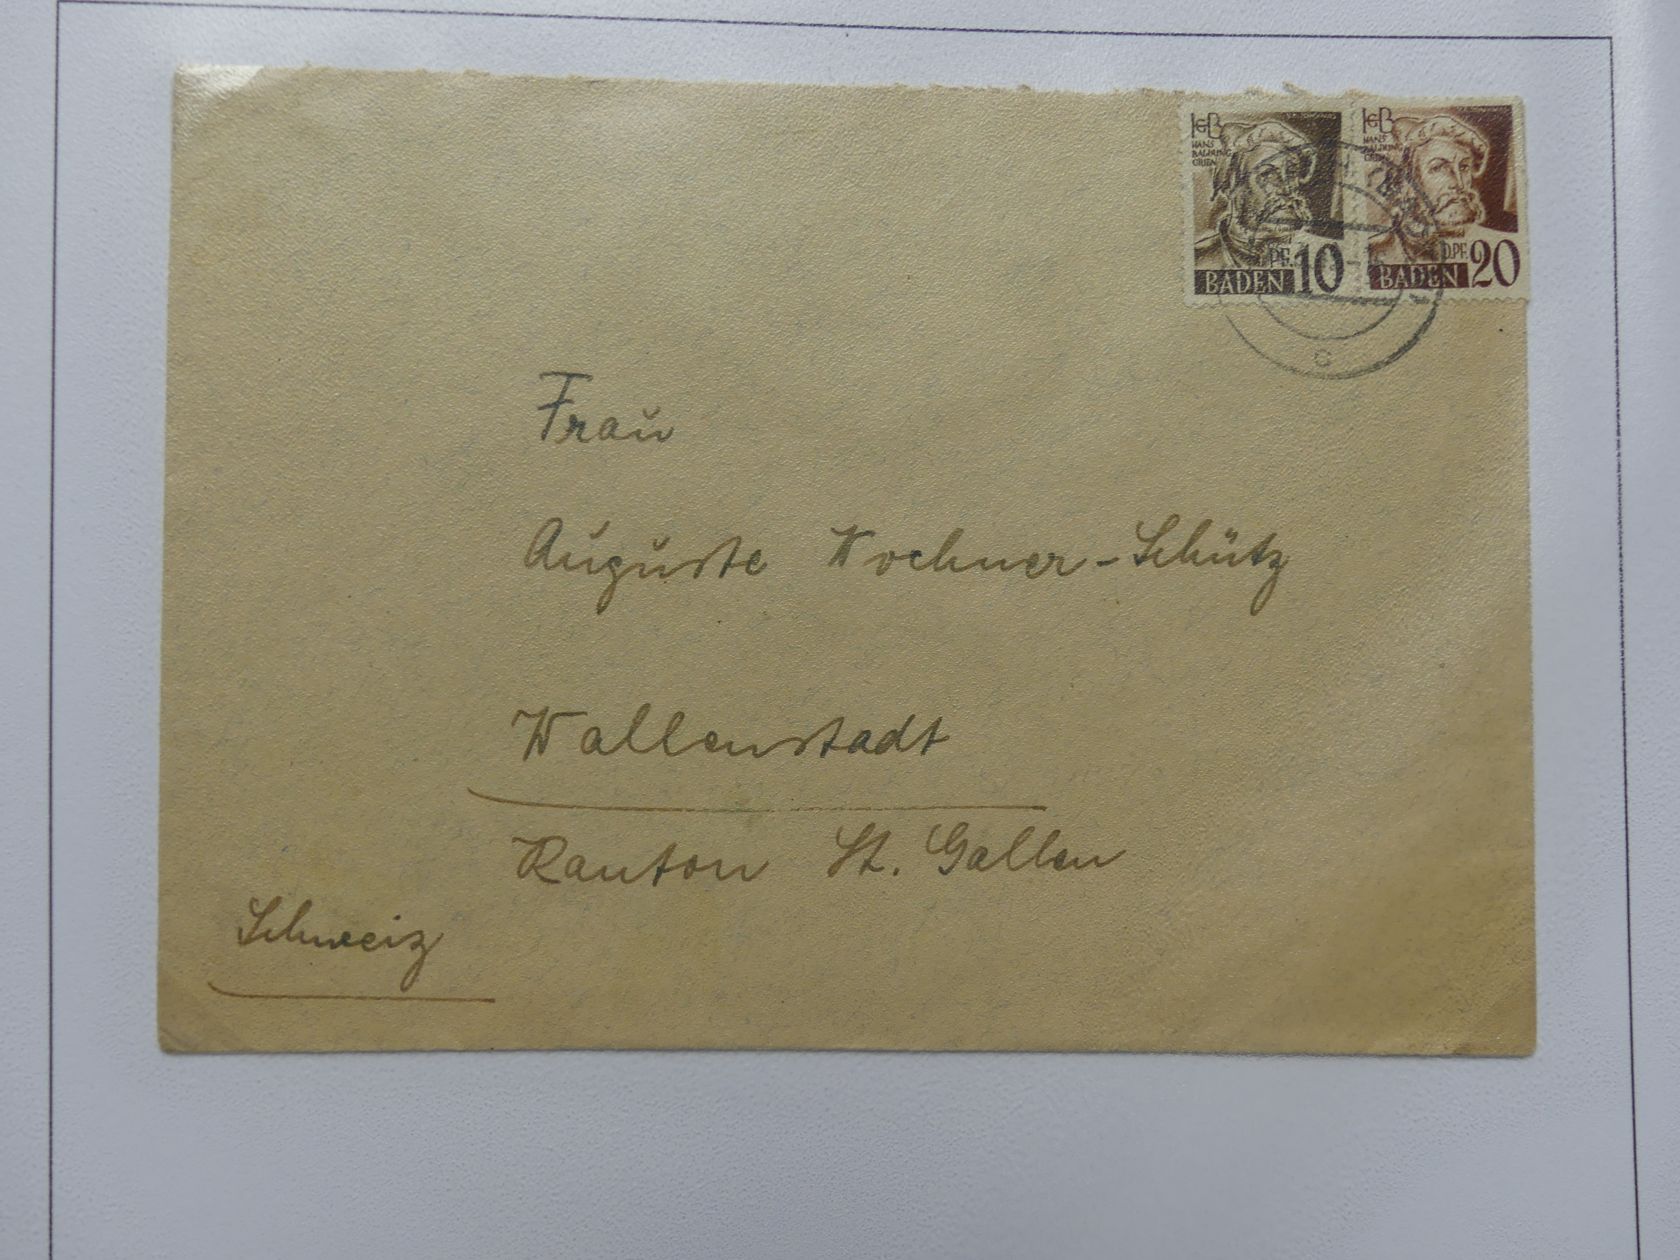 HGB
HANS
BALDUNG
GRIEN
PF. 10
BADEN
HGB
HANS
BALDUNG
GRIEN
D.PF. 20
BADEN
Frau
Auguste Wochner-Schütz
Wallenstadt
Kanton St. Gallen
Schweiz